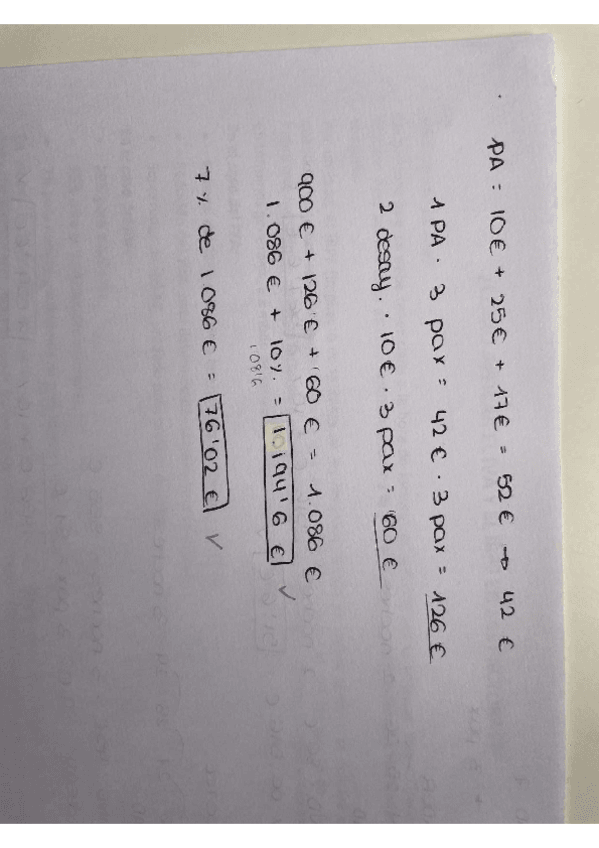 · PA : 10€ + 25€ + 17€ = 52€ → 42 €
1 PA · 3 pax = 42€ · 3 pax = 126 €
2 desay. · 10€ · 3 pax = 60 €
900 € + 126 € + 60 € = 1.086 €
1.086 € + 10% = 1.194'6 € ✓
108'6
7% de 1.086 € = 76'02 € ✓